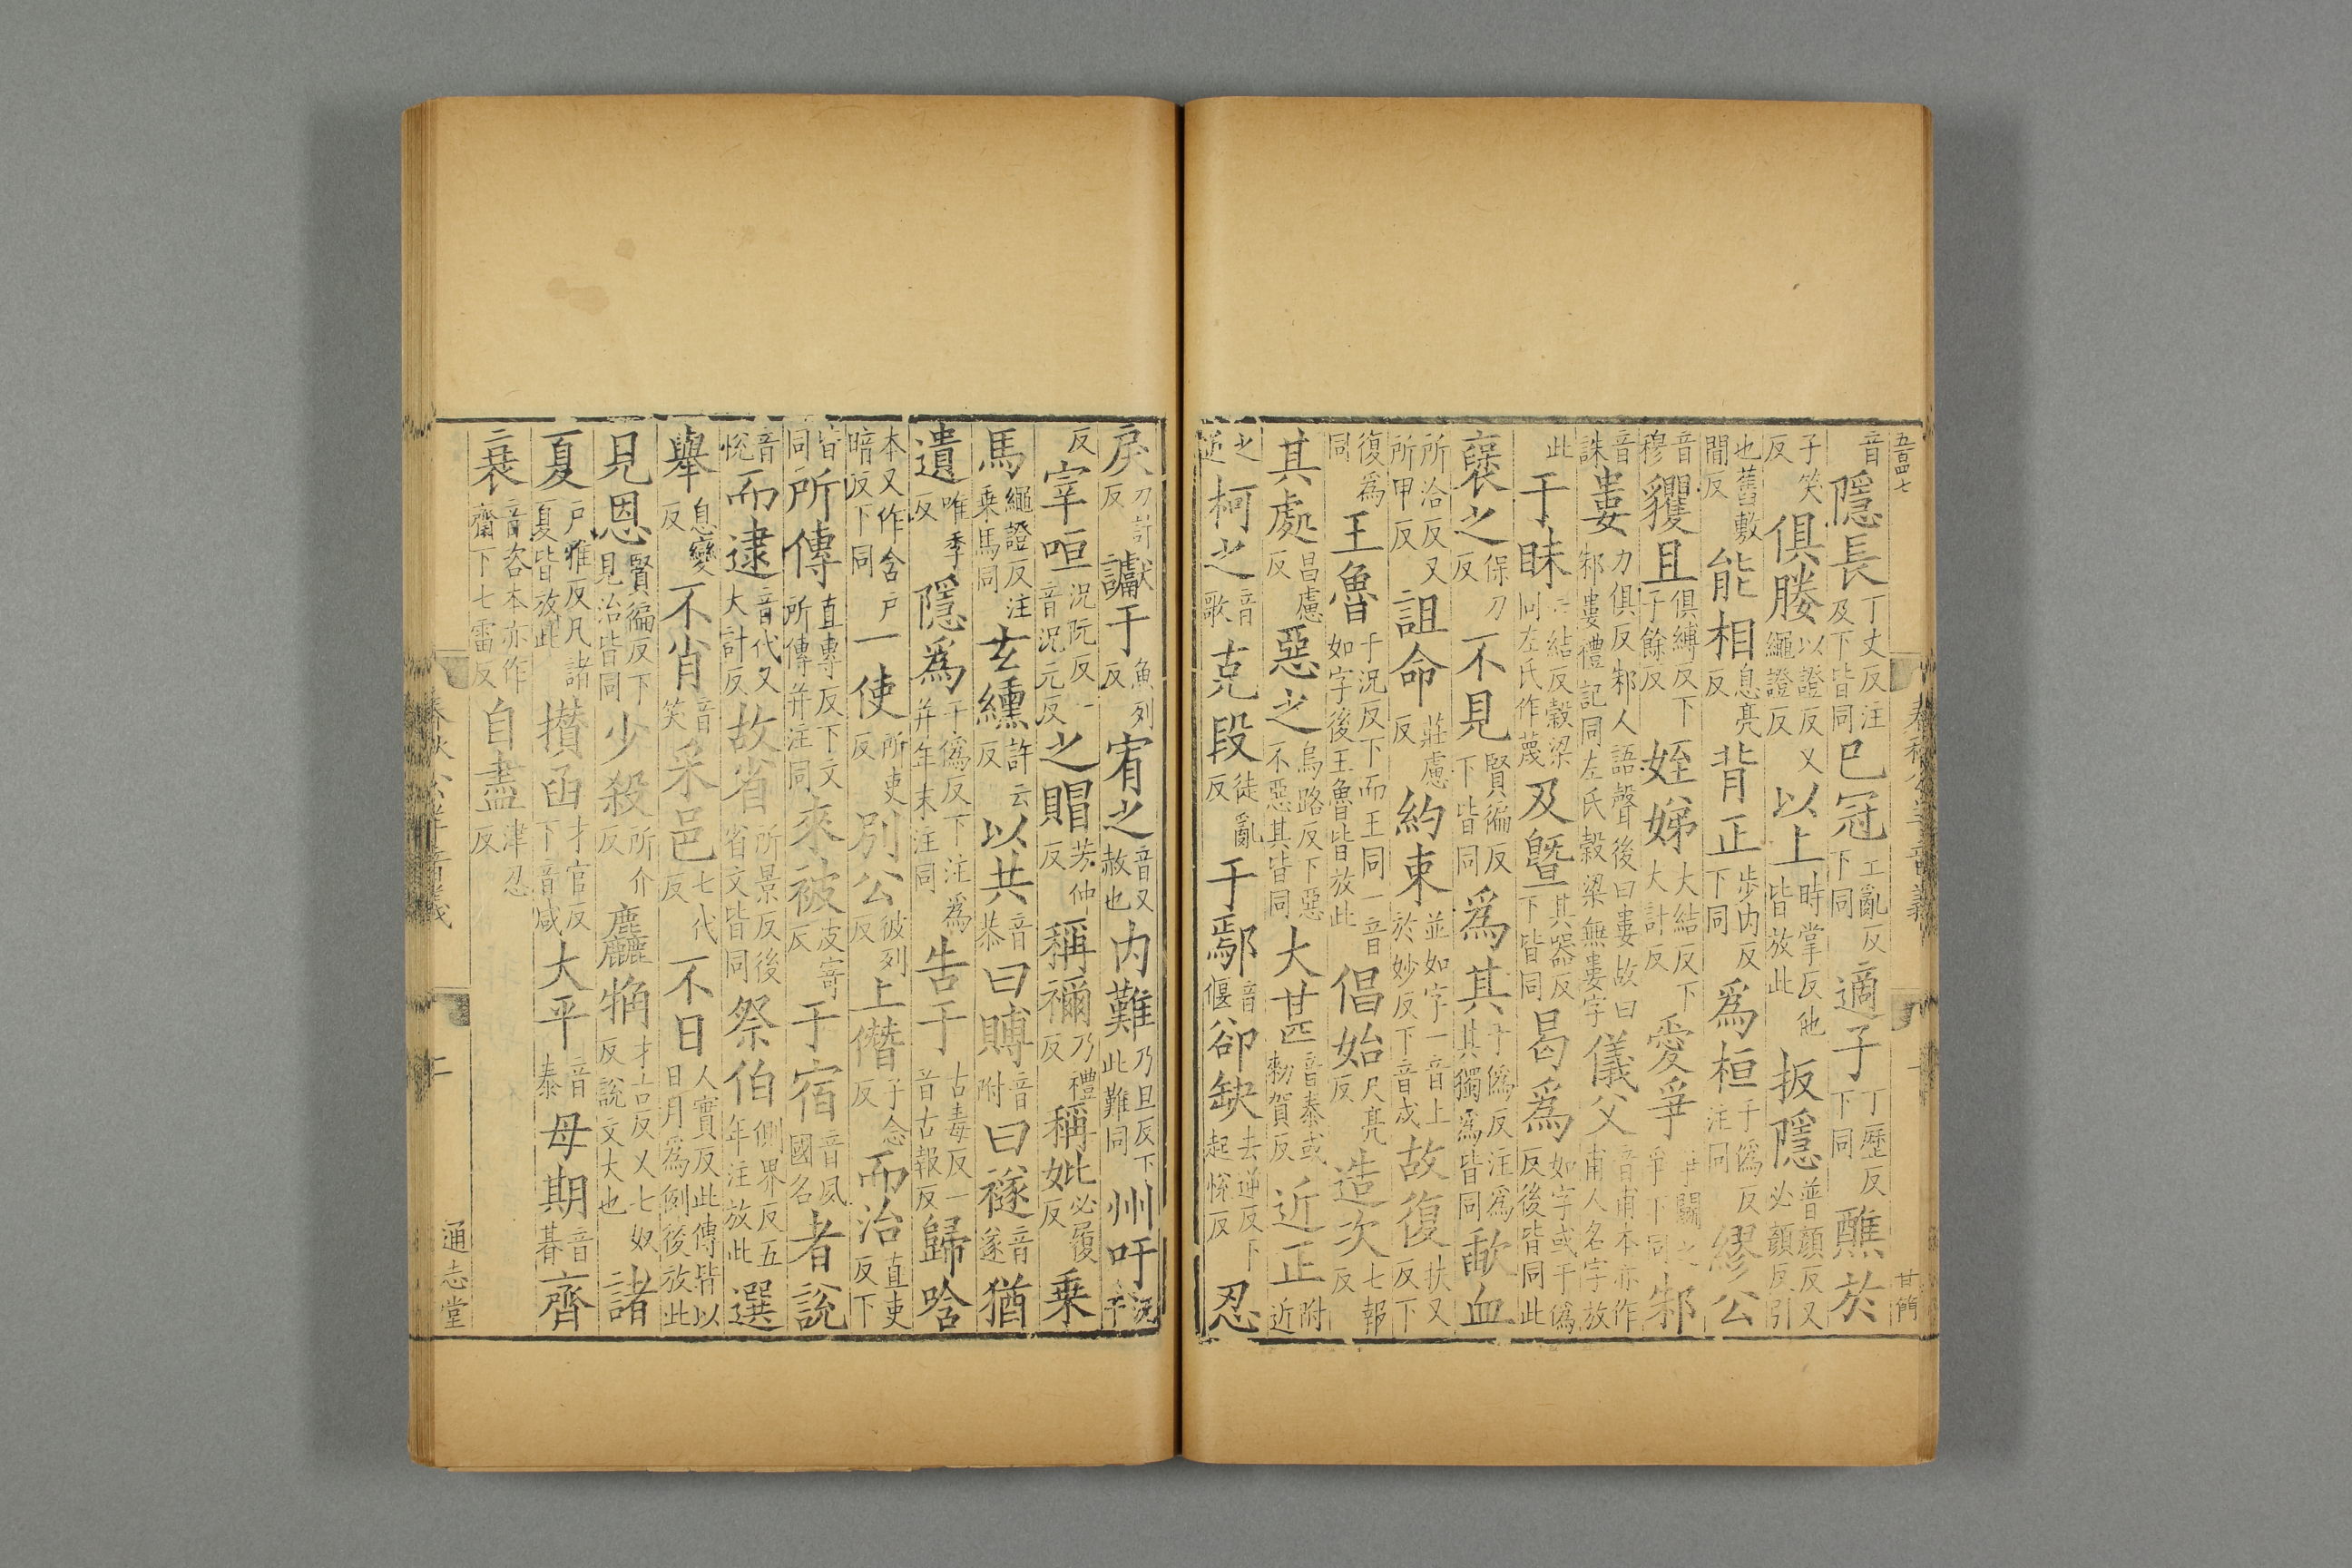 音隱長丁丈反注及下皆同巳冠工亂反下同適子丁歷反下同醮於
子笑反俱媵以證反又繩證反以上時掌反他皆放此扳隱普顏反又必顏反引
也舊敷閒反能相息亮反背正步内反下同爲桓于僞反注同繆公
音穆貜且俱縛反下子餘反姪娣大結反下大計反愛爭爭鬭之爭下同邾
音誅婁力俱反邾人語聲後曰婁故曰邾婁禮記同左氏穀梁無婁字儀父音甫本亦作甫人名字放
此于眛亡結反穀梁同左氏作蔑及曁其器反下皆同曷爲如字或于僞反後皆同此
襃之保刀反不見賢徧反下皆同爲其于僞反注爲其獨爲皆同歃血
所洽反又所甲反詛命莊慮反約束並如字一音上於妙反下音戍故復扶又反下
復爲同王魯于況反下而王同一音如字後王魯皆放此倡始尺亮反造次七報反
其處昌慮反惡之烏路反下惡不惡其皆同大甚音泰或勑賀反近正附近
之近柯之音歌克段徒亂反于鄢音偃郤缺去逆反下起悅反忍
戾力計反讞于魚列反宥之音又赦也内難乃旦反下此難同州吁況于
反宰咺況阮反一音況元反之賵芳仲反稱禰乃禮反稱妣必履反乗
馬繩證反注乗馬同玄纁許云反以共音恭曰賻音附曰襚音遂猶
遺唯季反隱爲于僞反下注爲并年末注同告于古毒反一音古報反歸唅
本又作含戶暗反下同一使所吏反別公彼列反上僭子念反而治直吏反下
皆同所傳直專反下文所傳并注同來被皮寄反于宿音夙國名者說
音悅而逮音代又大計反故省所景反後省文皆同祭伯側界反五年注放此選
舉息變反不肖音笑采邑七代反不日人實反此傳皆以日月爲例後放此
見恩賢徧反下見治皆同少殺所介反麤觕才古反又七奴反說文大也諸
夏戶雅反凡諸夏皆放此攢函才官反下音咸大平音泰母期音朞齊
衰音咨本亦作齋下七雷反自盡津忍反
通志堂